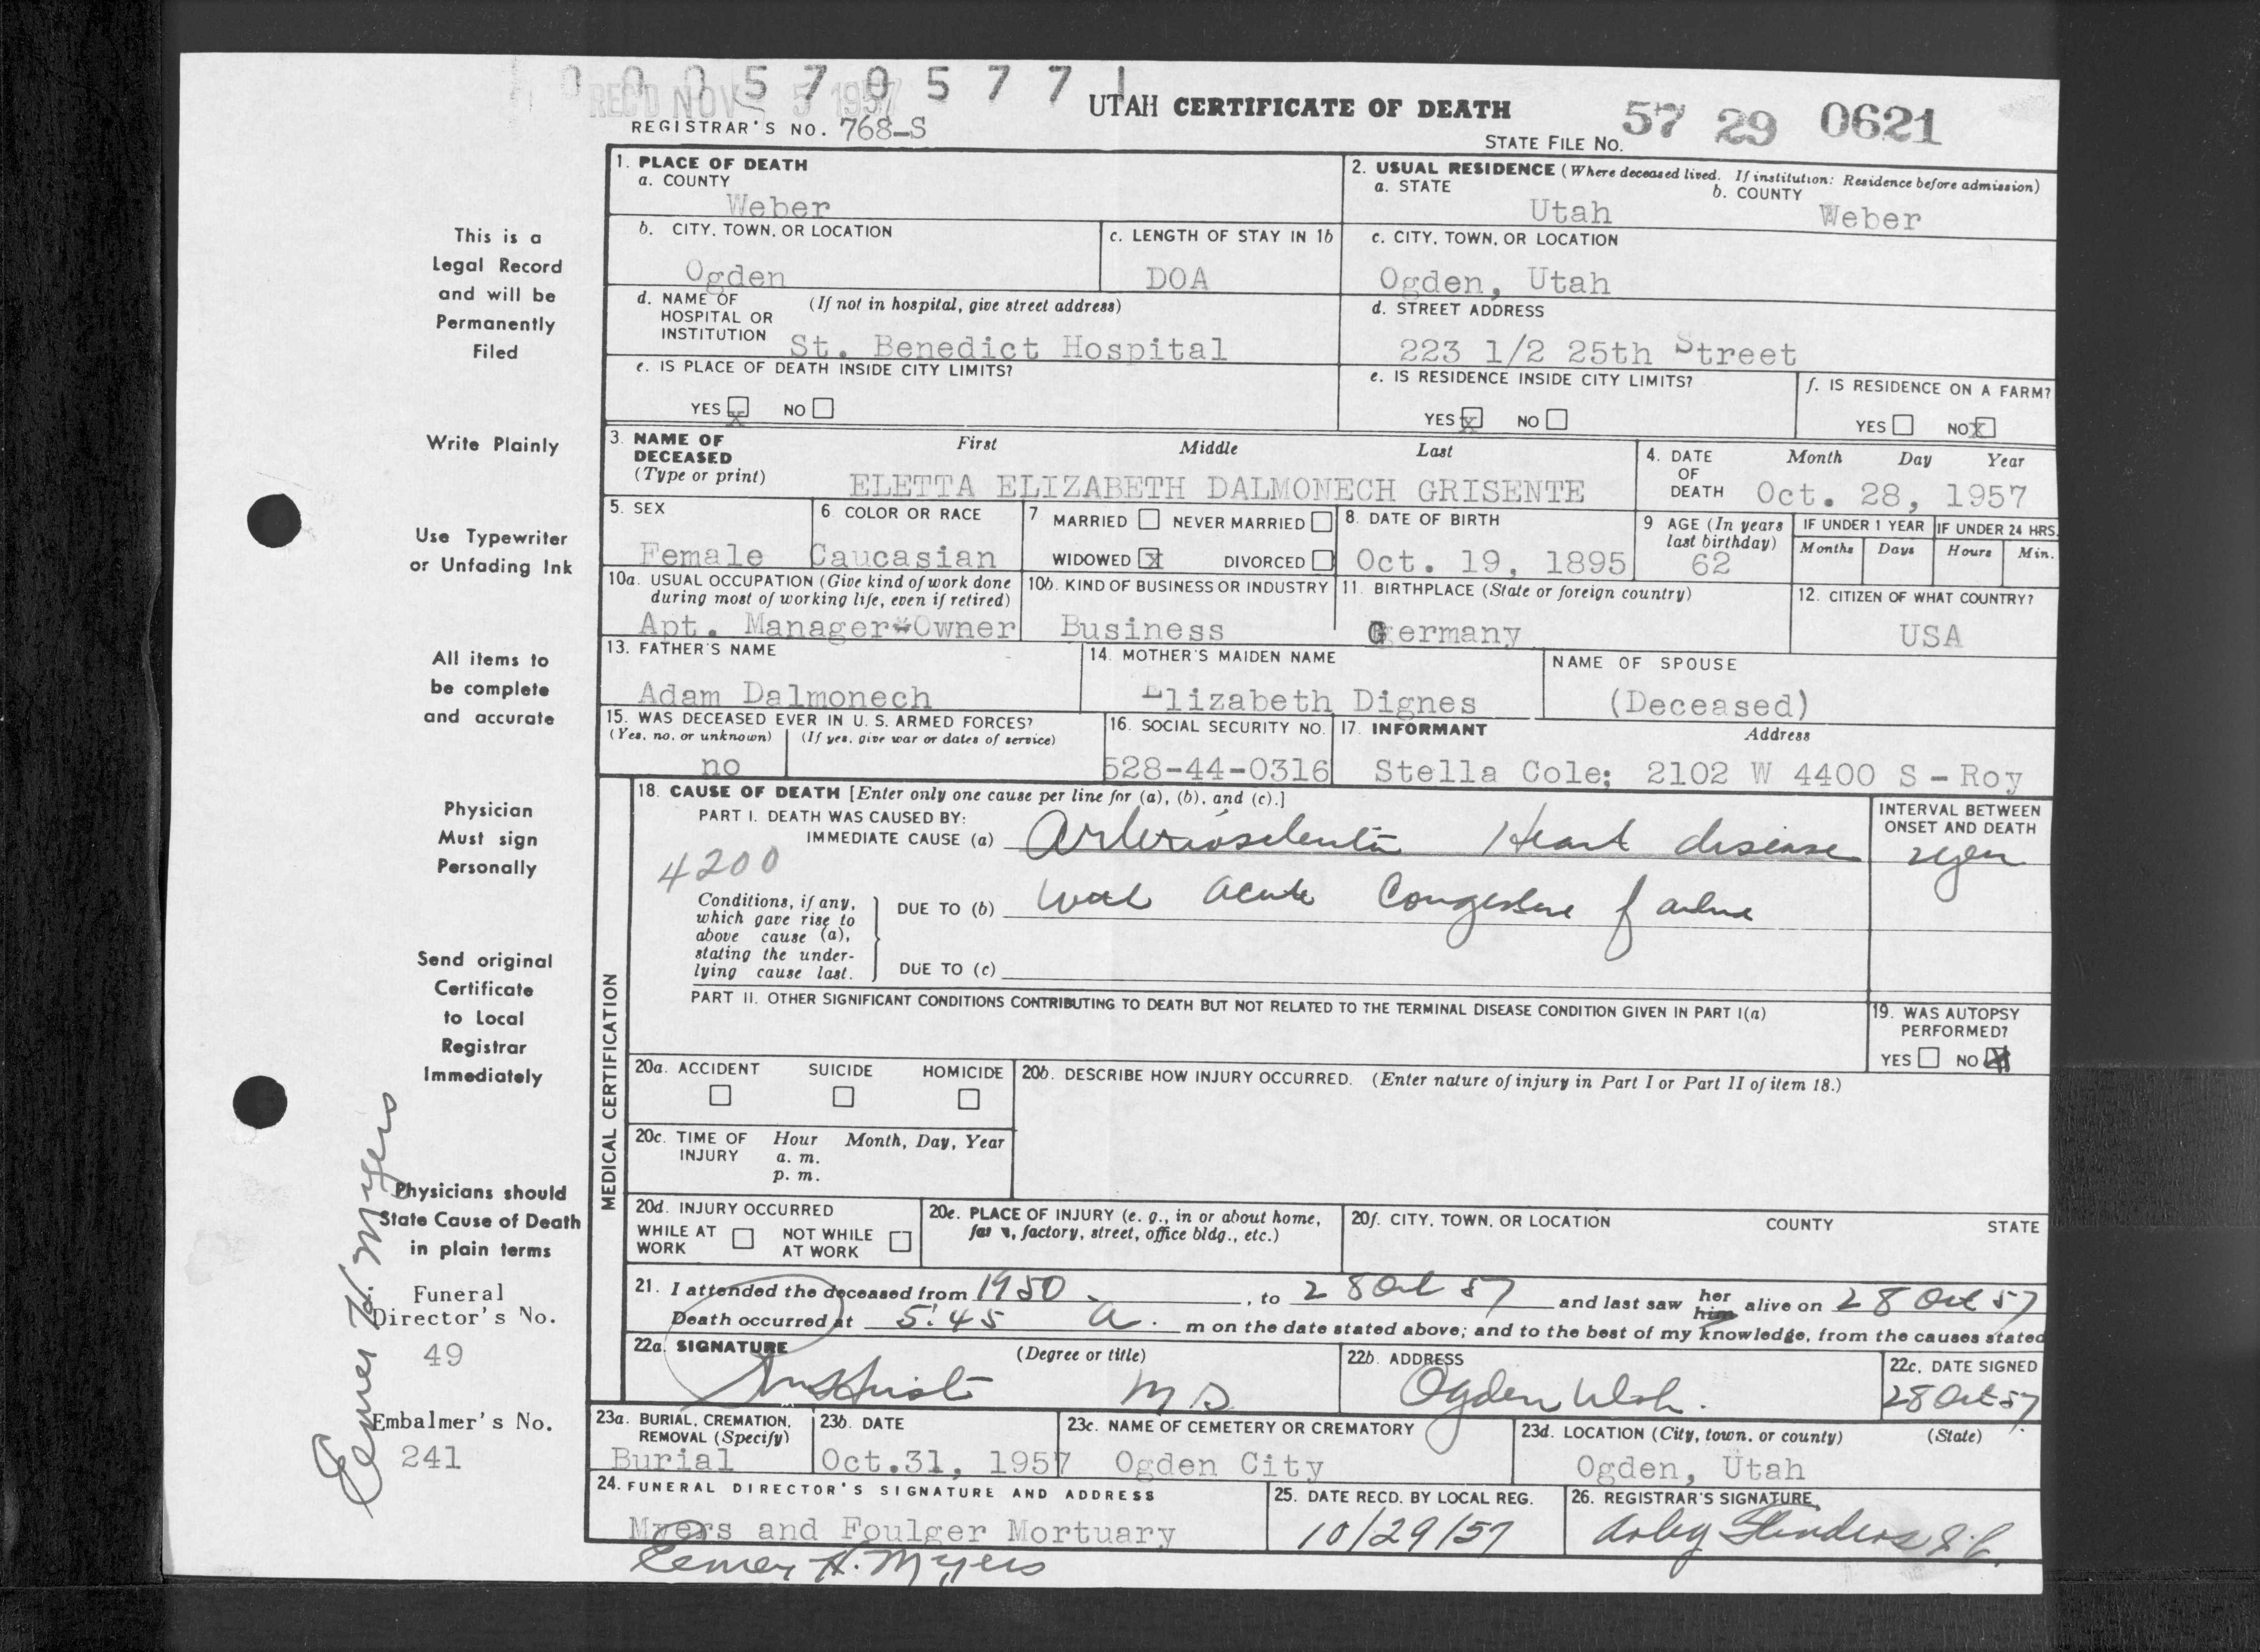 0 0 0 5 7 0 5 7 7 1
REC'D NOV 5 1957
UTAH CERTIFICATE OF DEATH
REGISTRAR'S NO. 768-S
STATE FILE NO. 57 29 0621
1. PLACE OF DEATH
a. COUNTY
Weber
2. USUAL RESIDENCE (Where deceased lived. If institution: Residence before admission)
a. STATE b. COUNTY
Utah Weber
b. CITY, TOWN, OR LOCATION
Ogden
c. LENGTH OF STAY IN 1b
DOA
c. CITY, TOWN, OR LOCATION
Ogden, Utah
d. NAME OF (If not in hospital, give street address)
HOSPITAL OR
INSTITUTION St. Benedict Hospital
d. STREET ADDRESS
223 1/2 25th Street
e. IS PLACE OF DEATH INSIDE CITY LIMITS?
YES x NO
e. IS RESIDENCE INSIDE CITY LIMITS?
YES x NO
f. IS RESIDENCE ON A FARM?
YES NO X
3. NAME OF First Middle Last
DECEASED
(Type or print) ELETTA ELIZABETH DALMONECH GRISENTE
4. DATE Month Day Year
OF
DEATH Oct. 28, 1957
5. SEX
Female
6. COLOR OR RACE
Caucasian
7 MARRIED NEVER MARRIED
WIDOWED X DIVORCED
8. DATE OF BIRTH
Oct. 19, 1895
9 AGE (In years
last birthday)
62
IF UNDER 1 YEAR
Months Days
IF UNDER 24 HRS.
Hours Min.
10a. USUAL OCCUPATION (Give kind of work done
during most of working life, even if retired)
Apt. Manager-Owner
10b. KIND OF BUSINESS OR INDUSTRY
Business
11. BIRTHPLACE (State or foreign country)
Germany
12. CITIZEN OF WHAT COUNTRY?
USA
13. FATHER'S NAME
Adam Dalmonech
14. MOTHER'S MAIDEN NAME
Elizabeth Dignes
NAME OF SPOUSE
(Deceased)
15. WAS DECEASED EVER IN U. S. ARMED FORCES?
(Yes, no, or unknown) (If yes, give war or dates of service)
no
16. SOCIAL SECURITY NO.
528-44-0316
17. INFORMANT Address
Stella Cole; 2102 W 4400 S - Roy
MEDICAL CERTIFICATION
18. CAUSE OF DEATH [Enter only one cause per line for (a), (b), and (c).]
PART I. DEATH WAS CAUSED BY:
IMMEDIATE CAUSE (a) Heart disease
4200
INTERVAL BETWEEN
ONSET AND DEATH
Conditions, if any,
which gave rise to
above cause (a),
stating the under-
lying cause last.
DUE TO (b) acute Congestive failure
DUE TO (c)
PART II. OTHER SIGNIFICANT CONDITIONS CONTRIBUTING TO DEATH BUT NOT RELATED TO THE TERMINAL DISEASE CONDITION GIVEN IN PART I(a)
19. WAS AUTOPSY
PERFORMED?
YES NO X
20a. ACCIDENT SUICIDE HOMICIDE
20b. DESCRIBE HOW INJURY OCCURRED. (Enter nature of injury in Part I or Part II of item 18.)
20c. TIME OF Hour Month, Day, Year
INJURY a. m.
p. m.
20d. INJURY OCCURRED
WHILE AT NOT WHILE
WORK AT WORK
20e. PLACE OF INJURY (e. g., in or about home,
farm, factory, street, office bldg., etc.)
20f. CITY, TOWN, OR LOCATION COUNTY STATE
21. I attended the deceased from 1950, to 28 Oct 57 and last saw her him alive on 28 Oct 57
Death occurred at 5:45 a. m on the date stated above; and to the best of my knowledge, from the causes stated
22a. SIGNATURE (Degree or title)
M D
22b. ADDRESS
Ogden Utah.
22c. DATE SIGNED
28 Oct 57
23a. BURIAL, CREMATION,
REMOVAL (Specify)
Burial
23b. DATE
Oct.31, 1957
23c. NAME OF CEMETERY OR CREMATORY
Ogden City
23d. LOCATION (City, town, or county) (State)
Ogden, Utah
24. FUNERAL DIRECTOR'S SIGNATURE AND ADDRESS
Myers and Foulger Mortuary
Elmer H. Myers
25. DATE RECD. BY LOCAL REG.
10/29/57
26. REGISTRAR'S SIGNATURE
This is a
Legal Record
and will be
Permanently
Filed
Write Plainly
Use Typewriter
or Unfading Ink
All items to
be complete
and accurate
Physician
Must sign
Personally
Send original
Certificate
to Local
Registrar
Immediately
Physicians should
State Cause of Death
in plain terms
Funeral
Director's No.
49
Embalmer's No.
241
Elmer H. Myers